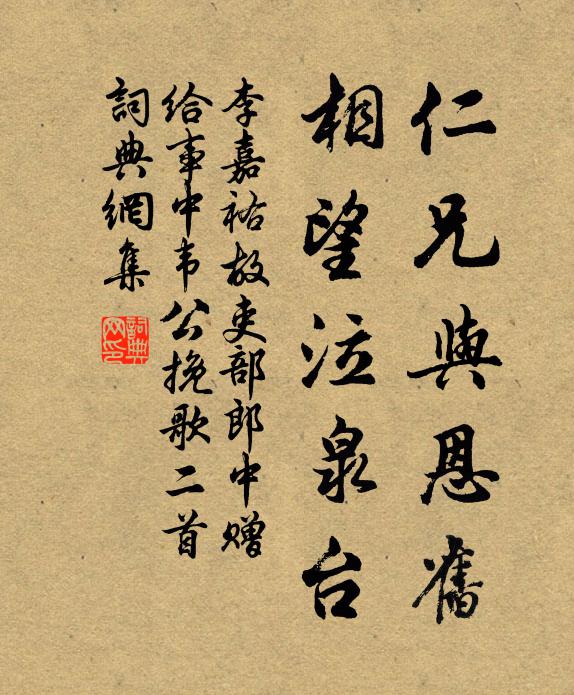 仁兄與恩舊
相望泣泉台
李嘉祐故吏部郎中贈
給事中韦公挽歌二首
詞典網集
詞典
网印